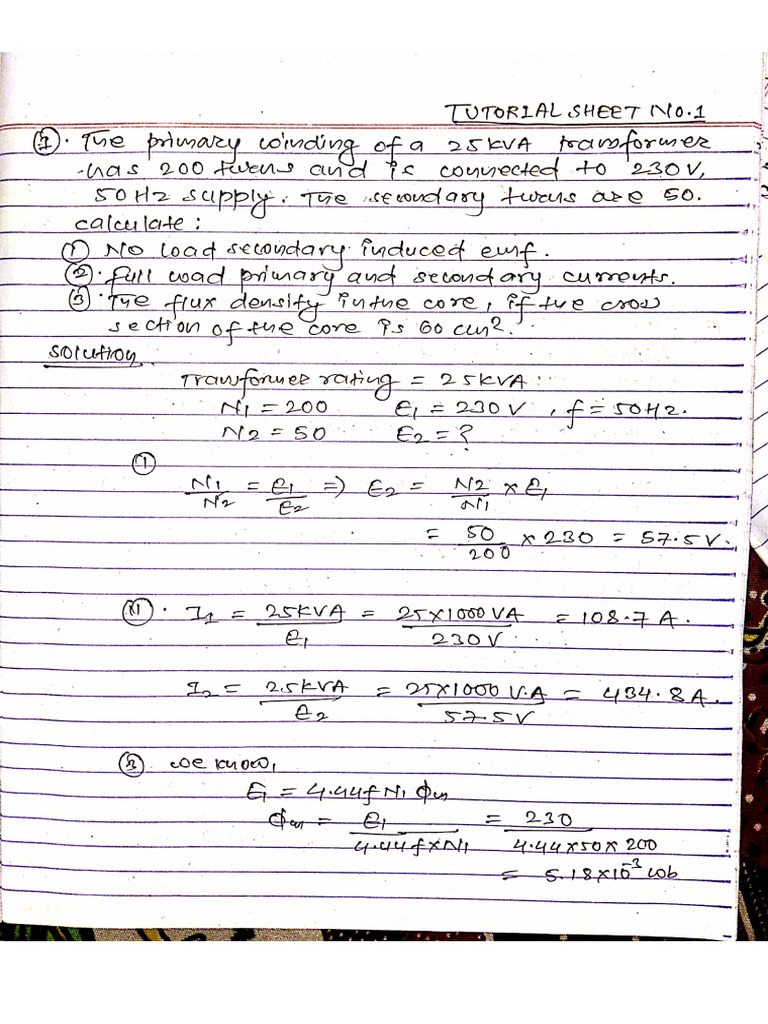 TUTORIAL SHEET NO.1
①. The primary winding of a 25KVA transformer
has 200 turns and is connected to 230V,
50Hz supply. The secondary turns are 50.
calculate :
① No load secondary induced emf.
②. full load primary and secondary currents.
③. The flux density in the core, if the cross
section of the core is 60 cm².
Solution
Transformer rating = 25KVA :
N1 = 200 E1 = 230V , f = 50Hz.
N2 = 50 E2 = ?
①
N1/N2 = E1/E2 => E2 = N2/N1 × E1
= 50/200 × 230 = 57.5V.
I1 = 25KVA/E1 = 25×1000VA/230V = 108.7 A.
I2 = 25KVA/E2 = 25×1000 V.A/57.5V = 434.8A.
③ we know,
E1 = 4.44fN1 Φm
Φm = E1/4.44f×N1 = 230/4.44×50×200
= 5.18×10⁻³ wb